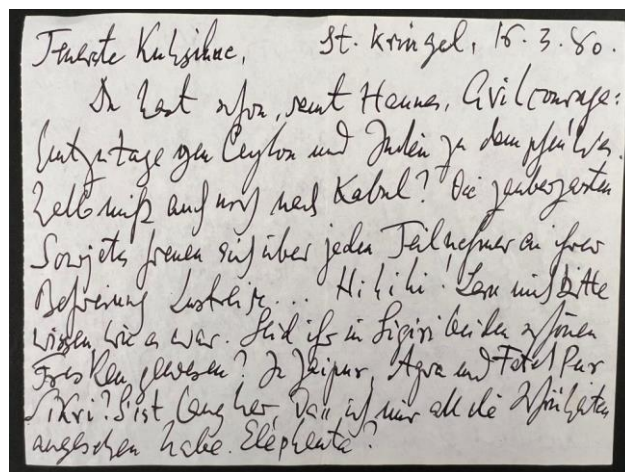 Teuerste Kuhsihne, St. Kringel, 16.3.80.
Du hast schon, samt Hannes, Civilcourage:
heutzutage gen Ceylon und Indien zu dampfen! Wes-
halb nicht auch noch nach Kabul? Die
Sowjets freuen sich über jeden Teilnehmer an ihrer
Befreiungslustreise... Hihihi! Lass mich bitte
wissen wie es war. Seid ihr in Sigiri bei den schönen
Fresken gewesen? In Jaipur, Agra und Fateh Pur
Sikri? S'ist lang her, dass ich mir all die Schönheiten
angesehen habe. Elephanta?